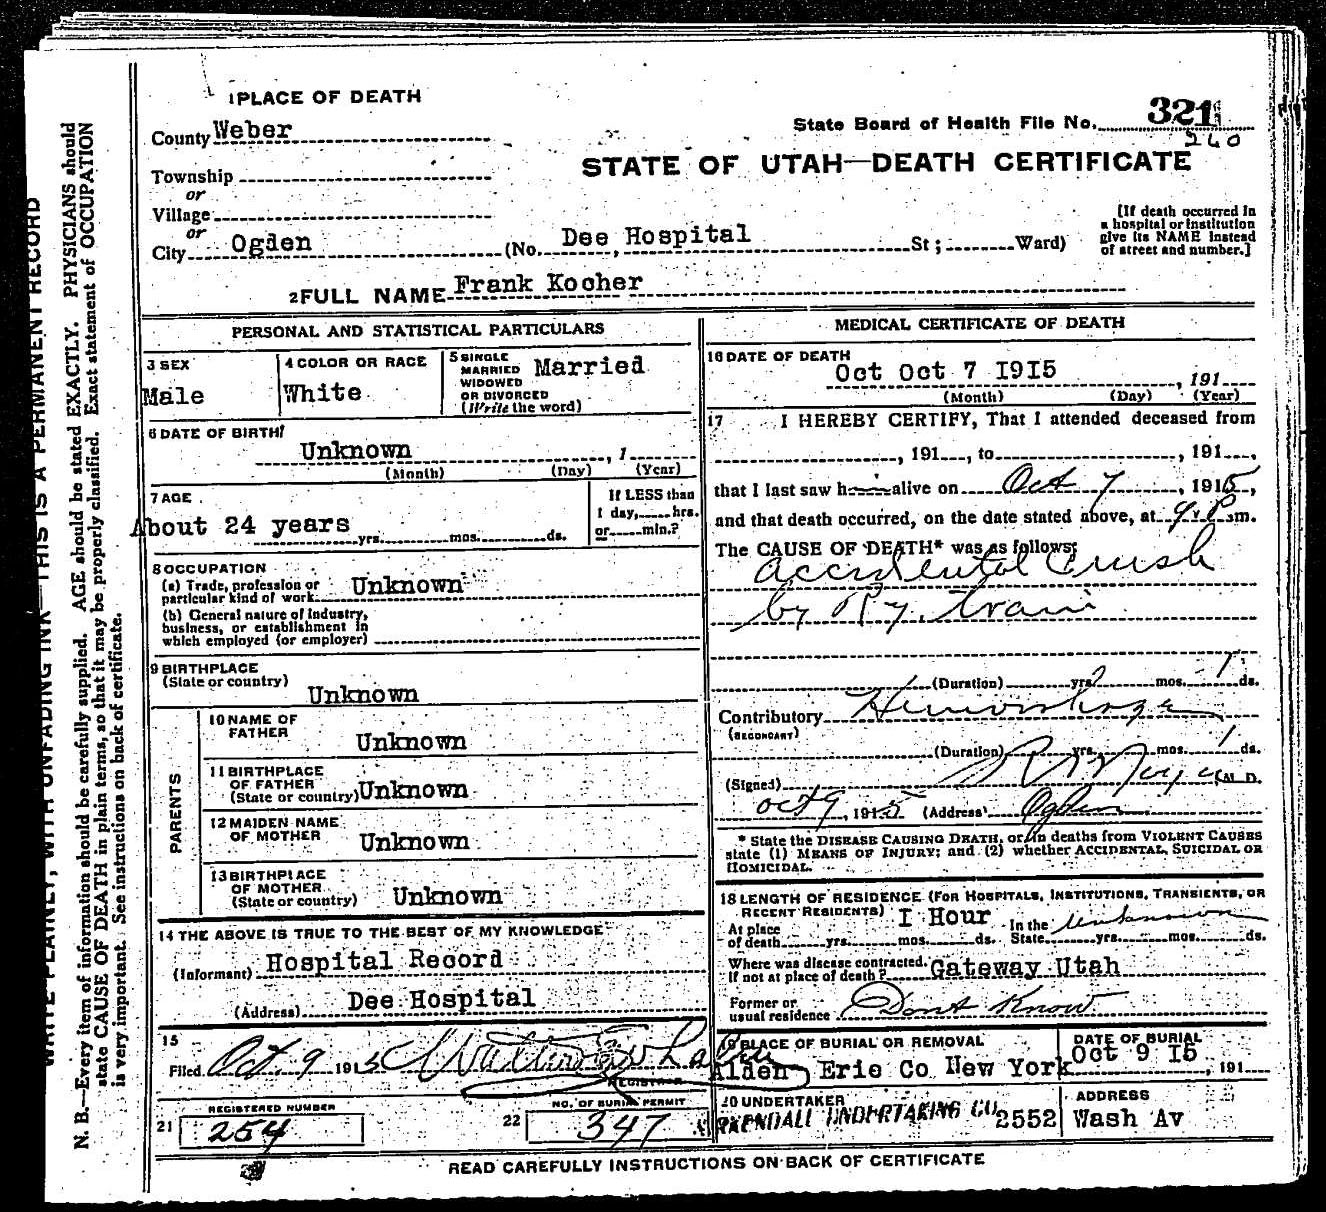 1 PLACE OF DEATH
County Weber
State Board of Health File No. 321
260
STATE OF UTAH—DEATH CERTIFICATE
Township
or
Village
or
City Ogden (No. Dee Hospital St; Ward)
[If death occurred in a hospital or institution give its NAME instead of street and number.]
2 FULL NAME Frank Kocher
PERSONAL AND STATISTICAL PARTICULARS
3 SEX
Male
4 COLOR OR RACE
White
5 SINGLE
MARRIED
WIDOWED
OR DIVORCED
(Write the word)
Married
6 DATE OF BIRTH
Unknown , 1
(Month) (Day) (Year)
7 AGE
About 24 years yrs. mos. ds.
If LESS than
1 day, hrs.
or min.?
8 OCCUPATION
(a) Trade, profession or
particular kind of work Unknown
(b) General nature of Industry,
business, or establishment in
which employed (or employer)
9 BIRTHPLACE
(State or country)
Unknown
PARENTS
10 NAME OF
FATHER
Unknown
11 BIRTHPLACE
OF FATHER
(State or country) Unknown
12 MAIDEN NAME
OF MOTHER
Unknown
13 BIRTHPLACE
OF MOTHER
(State or country) Unknown
14 THE ABOVE IS TRUE TO THE BEST OF MY KNOWLEDGE
(Informant) Hospital Record
(Address) Dee Hospital
15
Filed Oct. 9 1915
REGISTRAR
REGISTERED NUMBER
21 254
NO. OF BURIAL PERMIT
22 347
MEDICAL CERTIFICATE OF DEATH
16 DATE OF DEATH
Oct Oct 7 I9I5 , 191
(Month) (Day) (Year)
17 I HEREBY CERTIFY, That I attended deceased from
, 191 , to , 191 ,
that I last saw h alive on Oct 7 , 1915,
and that death occurred, on the date stated above, at P m.
The CAUSE OF DEATH* was as follows:
accidental Crush
by Ry. train
(Duration) yrs. mos. 1 ds.
Contributory Hemorrhage
(SECONDARY)
(Duration) yrs. mos. 1 ds.
(Signed) M. D.
Oct 9, 1915 (Address) Ogden
* State the DISEASE CAUSING DEATH, or in deaths from VIOLENT CAUSES
state (1) MEANS OF INJURY; and (2) whether ACCIDENTAL, SUICIDAL OR
HOMICIDAL.
18 LENGTH OF RESIDENCE (FOR HOSPITALS, INSTITUTIONS, TRANSIENTS, OR
RECENT RESIDENTS)
At place
of death I Hour yrs. mos. ds.
In the
State unknown yrs. mos. ds.
Where was disease contracted,
If not at place of death? Gateway Utah
Former or
usual residence Dont Know
19 PLACE OF BURIAL OR REMOVAL
Alden Erie Co New York
DATE OF BURIAL
Oct 9 I5 , 191
20 UNDERTAKER
KIRKENDALL UNDERTAKING CO. 2552
ADDRESS
Wash Av
READ CAREFULLY INSTRUCTIONS ON BACK OF CERTIFICATE
WRITE PLAINLY, WITH UNFADING INK—THIS IS A PERMANENT RECORD
N. B.—Every item of information should be carefully supplied. AGE should be stated EXACTLY. PHYSICIANS should
state CAUSE OF DEATH in plain terms, so that it may be properly classified. Exact statement of OCCUPATION
is very important. See instructions on back of certificate.